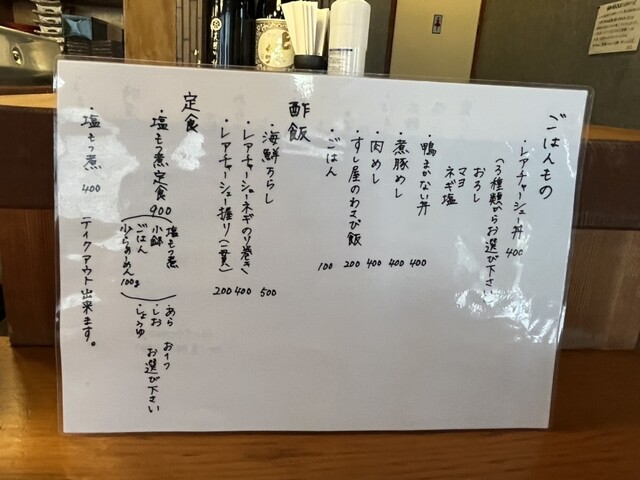 ごはんもの
・レアチャーシュー丼 400
(3種類からお選び下さい)
おろし
マヨ
ネギ塩
・鴨まかない丼 400
・煮豚めし 400
・肉めし 400
・すし屋のわさび飯 200
・ごはん 100
酢飯
・海鮮ちらし 500
・レアチャーシューネギのり巻き 400
・レアチャーシュー握り(一貫) 200
定食
・塩もつ煮定食 900
塩もつ煮
小鉢
ごはん
少らぁめん 100g
・あら
・しお
・しょうゆ
お選び下さい
・塩もつ煮 400
テイクアウト出来ます。